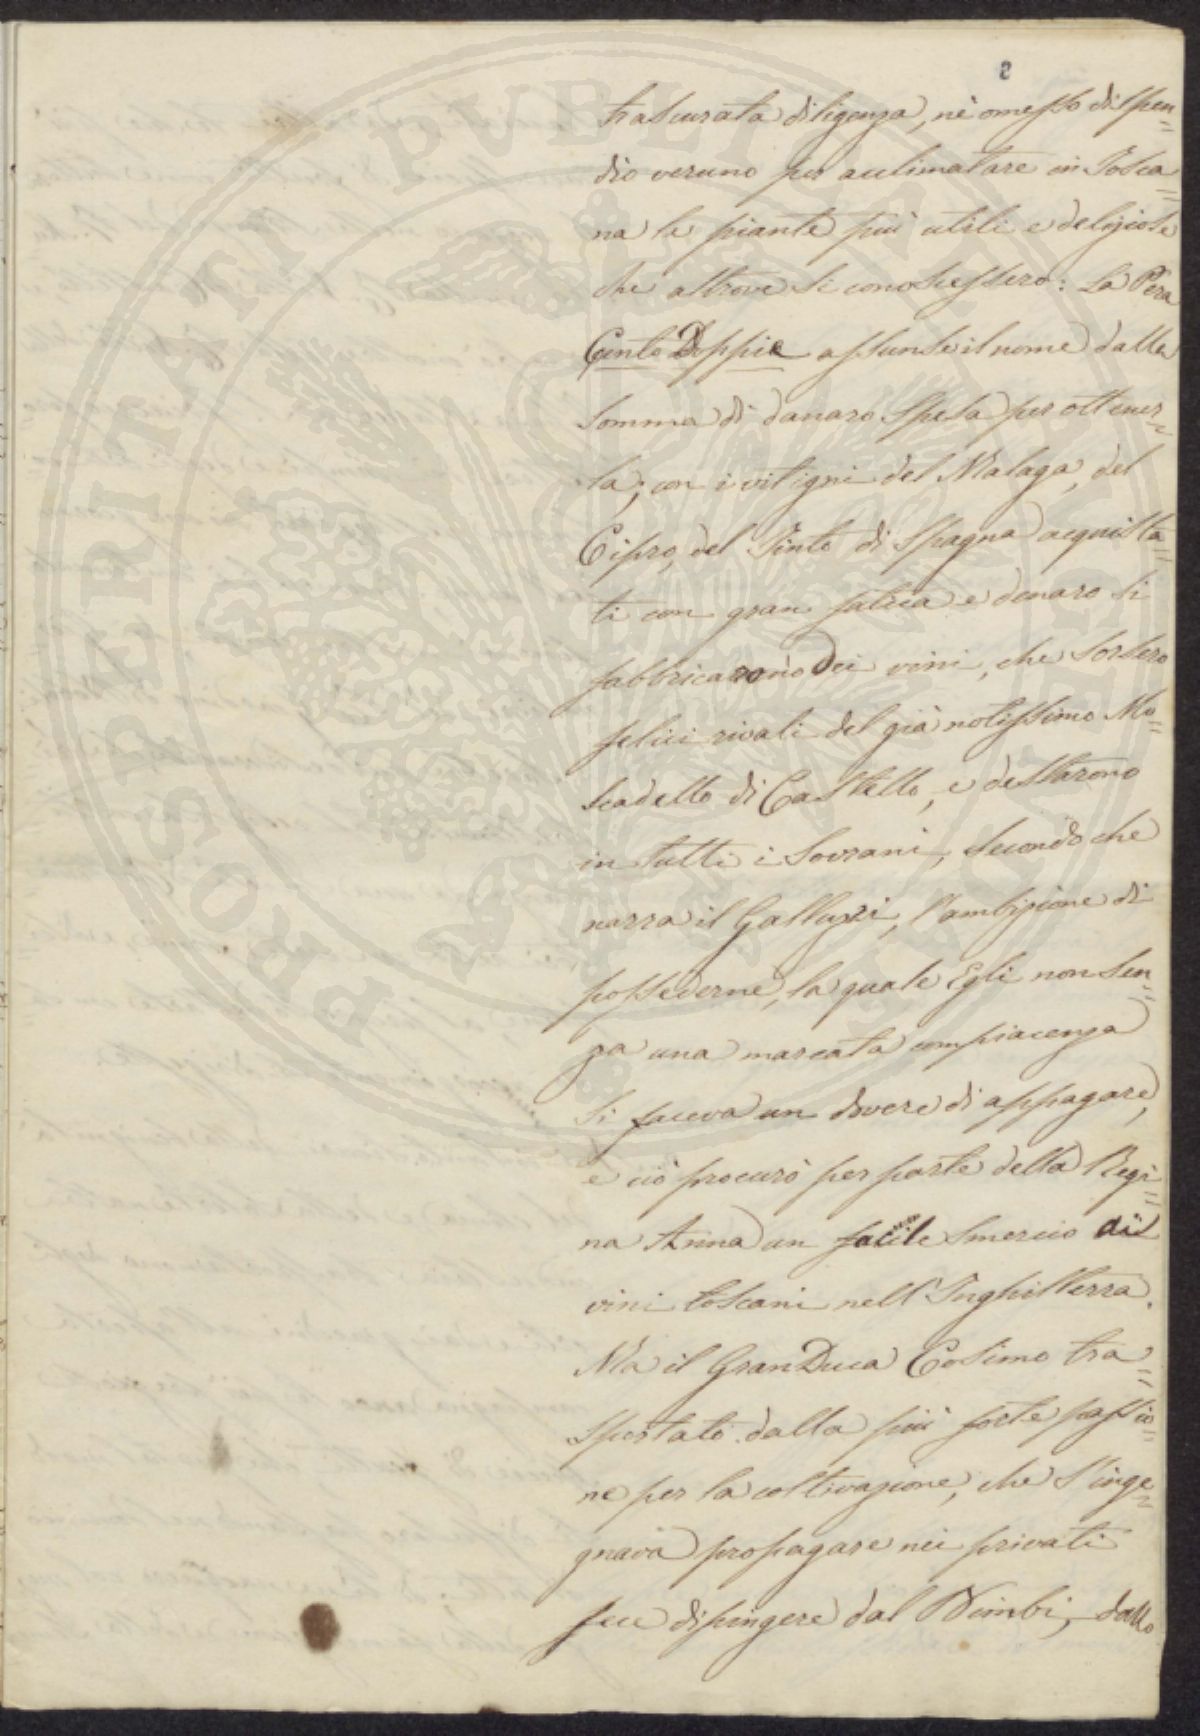 8
trascurata diligenza, nè omesso dispen=
dio veruno per acclimatare in Tosca=
na le piante più utili e deliziose
che altrove si conoscessero: La Pera
Cento Doppie assunse il nome dalla
somma di danaro spesa per ottener=
la; con i vitigni del Malaga, del
Cipro, del Tinto di Spagna acquista=
ti con gran fatica e denaro si
fabbricarono dei vini, che sorsero
felici rivali del già notissimo Mo=
scadello di Castello, e destarono
in tutti i Sovrani, secondo che
narra il Galluzzi, l'ambizione di
possederne, la quale Egli non sen=
za una marcata compiacenza
si faceva un dovere di appagare,
e ciò procurò per parte della Regi=
na Anna un facile smercio di
vini toscani nell'Inghilterra.
Ma il GranDuca Cosimo tra=
sportato dalla più forte passio=
ne per la coltivazione, che s'inge=
gnava propagare nei privati
fece dipingere dal Bimbi, dallo
PROSPERITATI PVBLICAE